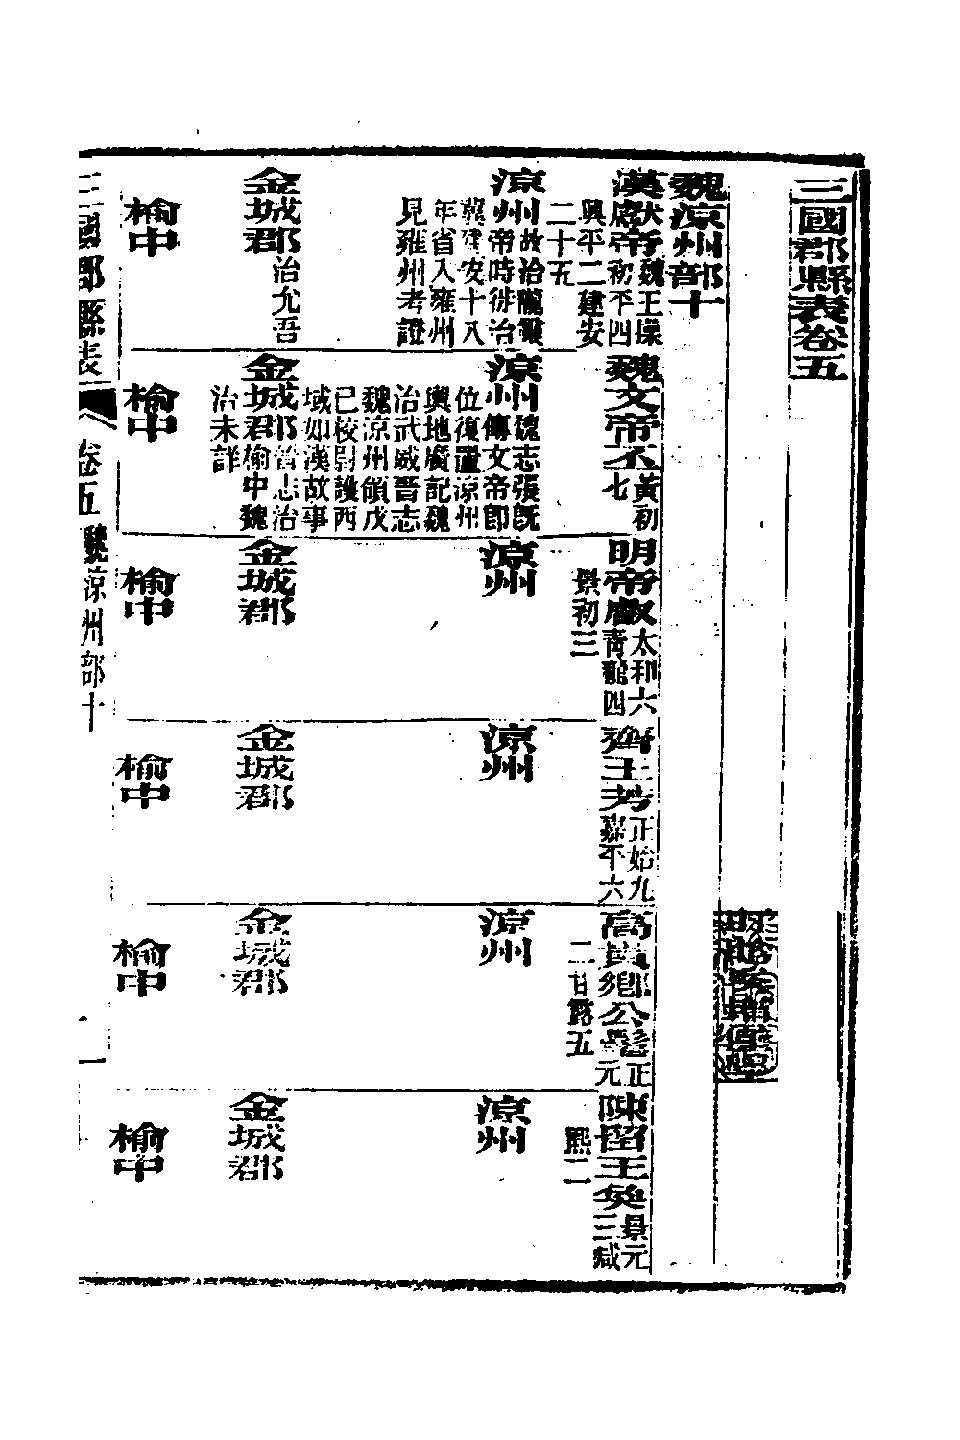 三國郡縣表卷五
魏涼州部十
漢獻帝魏王操初平四
興平二建安
二十五
魏文帝丕黃初
七
明帝叡太和六
青龍四
景初三
齊王芳正始九
嘉平六
高貴鄉公髦正元
二甘露五
陳留王奐景元
三咸
熙二
涼州故治隴
州帝時徙治
冀建安十八
年省入雍州
見雍州考證
涼州魏志張既
傳文帝即
位復置涼州
輿地廣記魏
治武威晉志
魏涼州領戊
己校尉護西
域如漢故事
涼州
涼州
涼州
涼州
金城郡治允吾
金城郡晉志治
榆中魏
治未詳
金城郡
金城郡
金城郡
金城郡
榆中
榆中
榆中
榆中
榆中
榆中
三國郡縣表 卷五 魏涼州部十 一